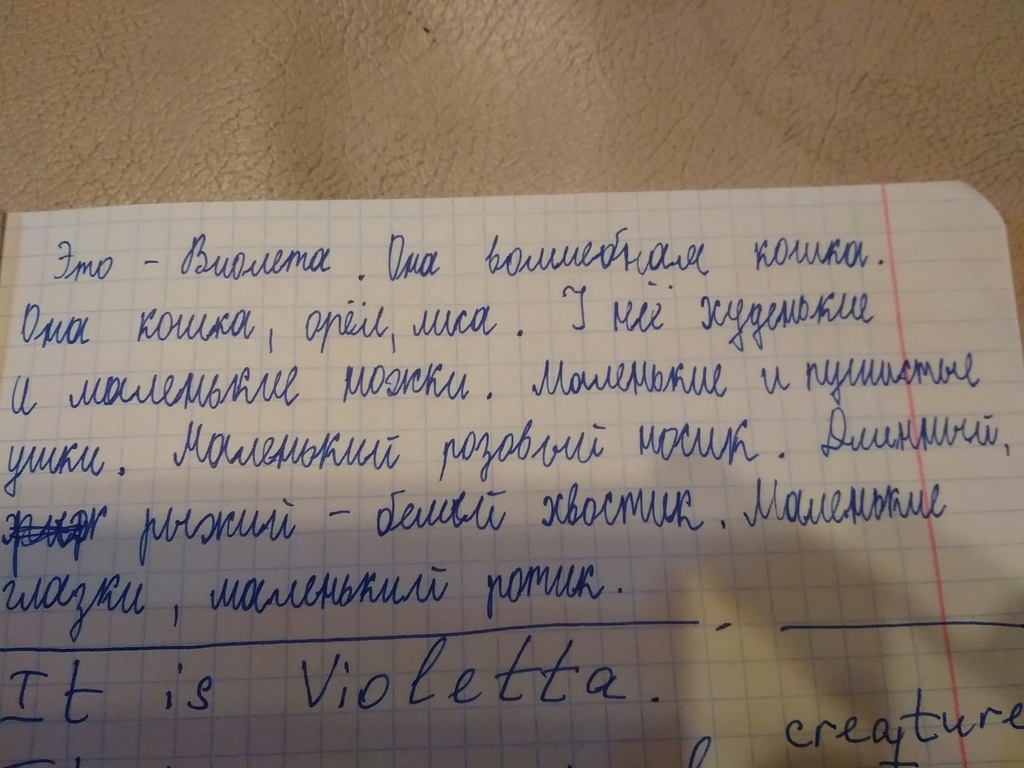 Это - Виолета. Она волшебная кошка.
Она кошка, орёл, лиса. У неё худенькие
и маленькие ножки. Маленькие и пушистые
ушки. Маленький розовый носик. Длинный,
рыжий - белый хвостик. Маленькие
глазки, маленький ротик.
It is Violetta.
creature